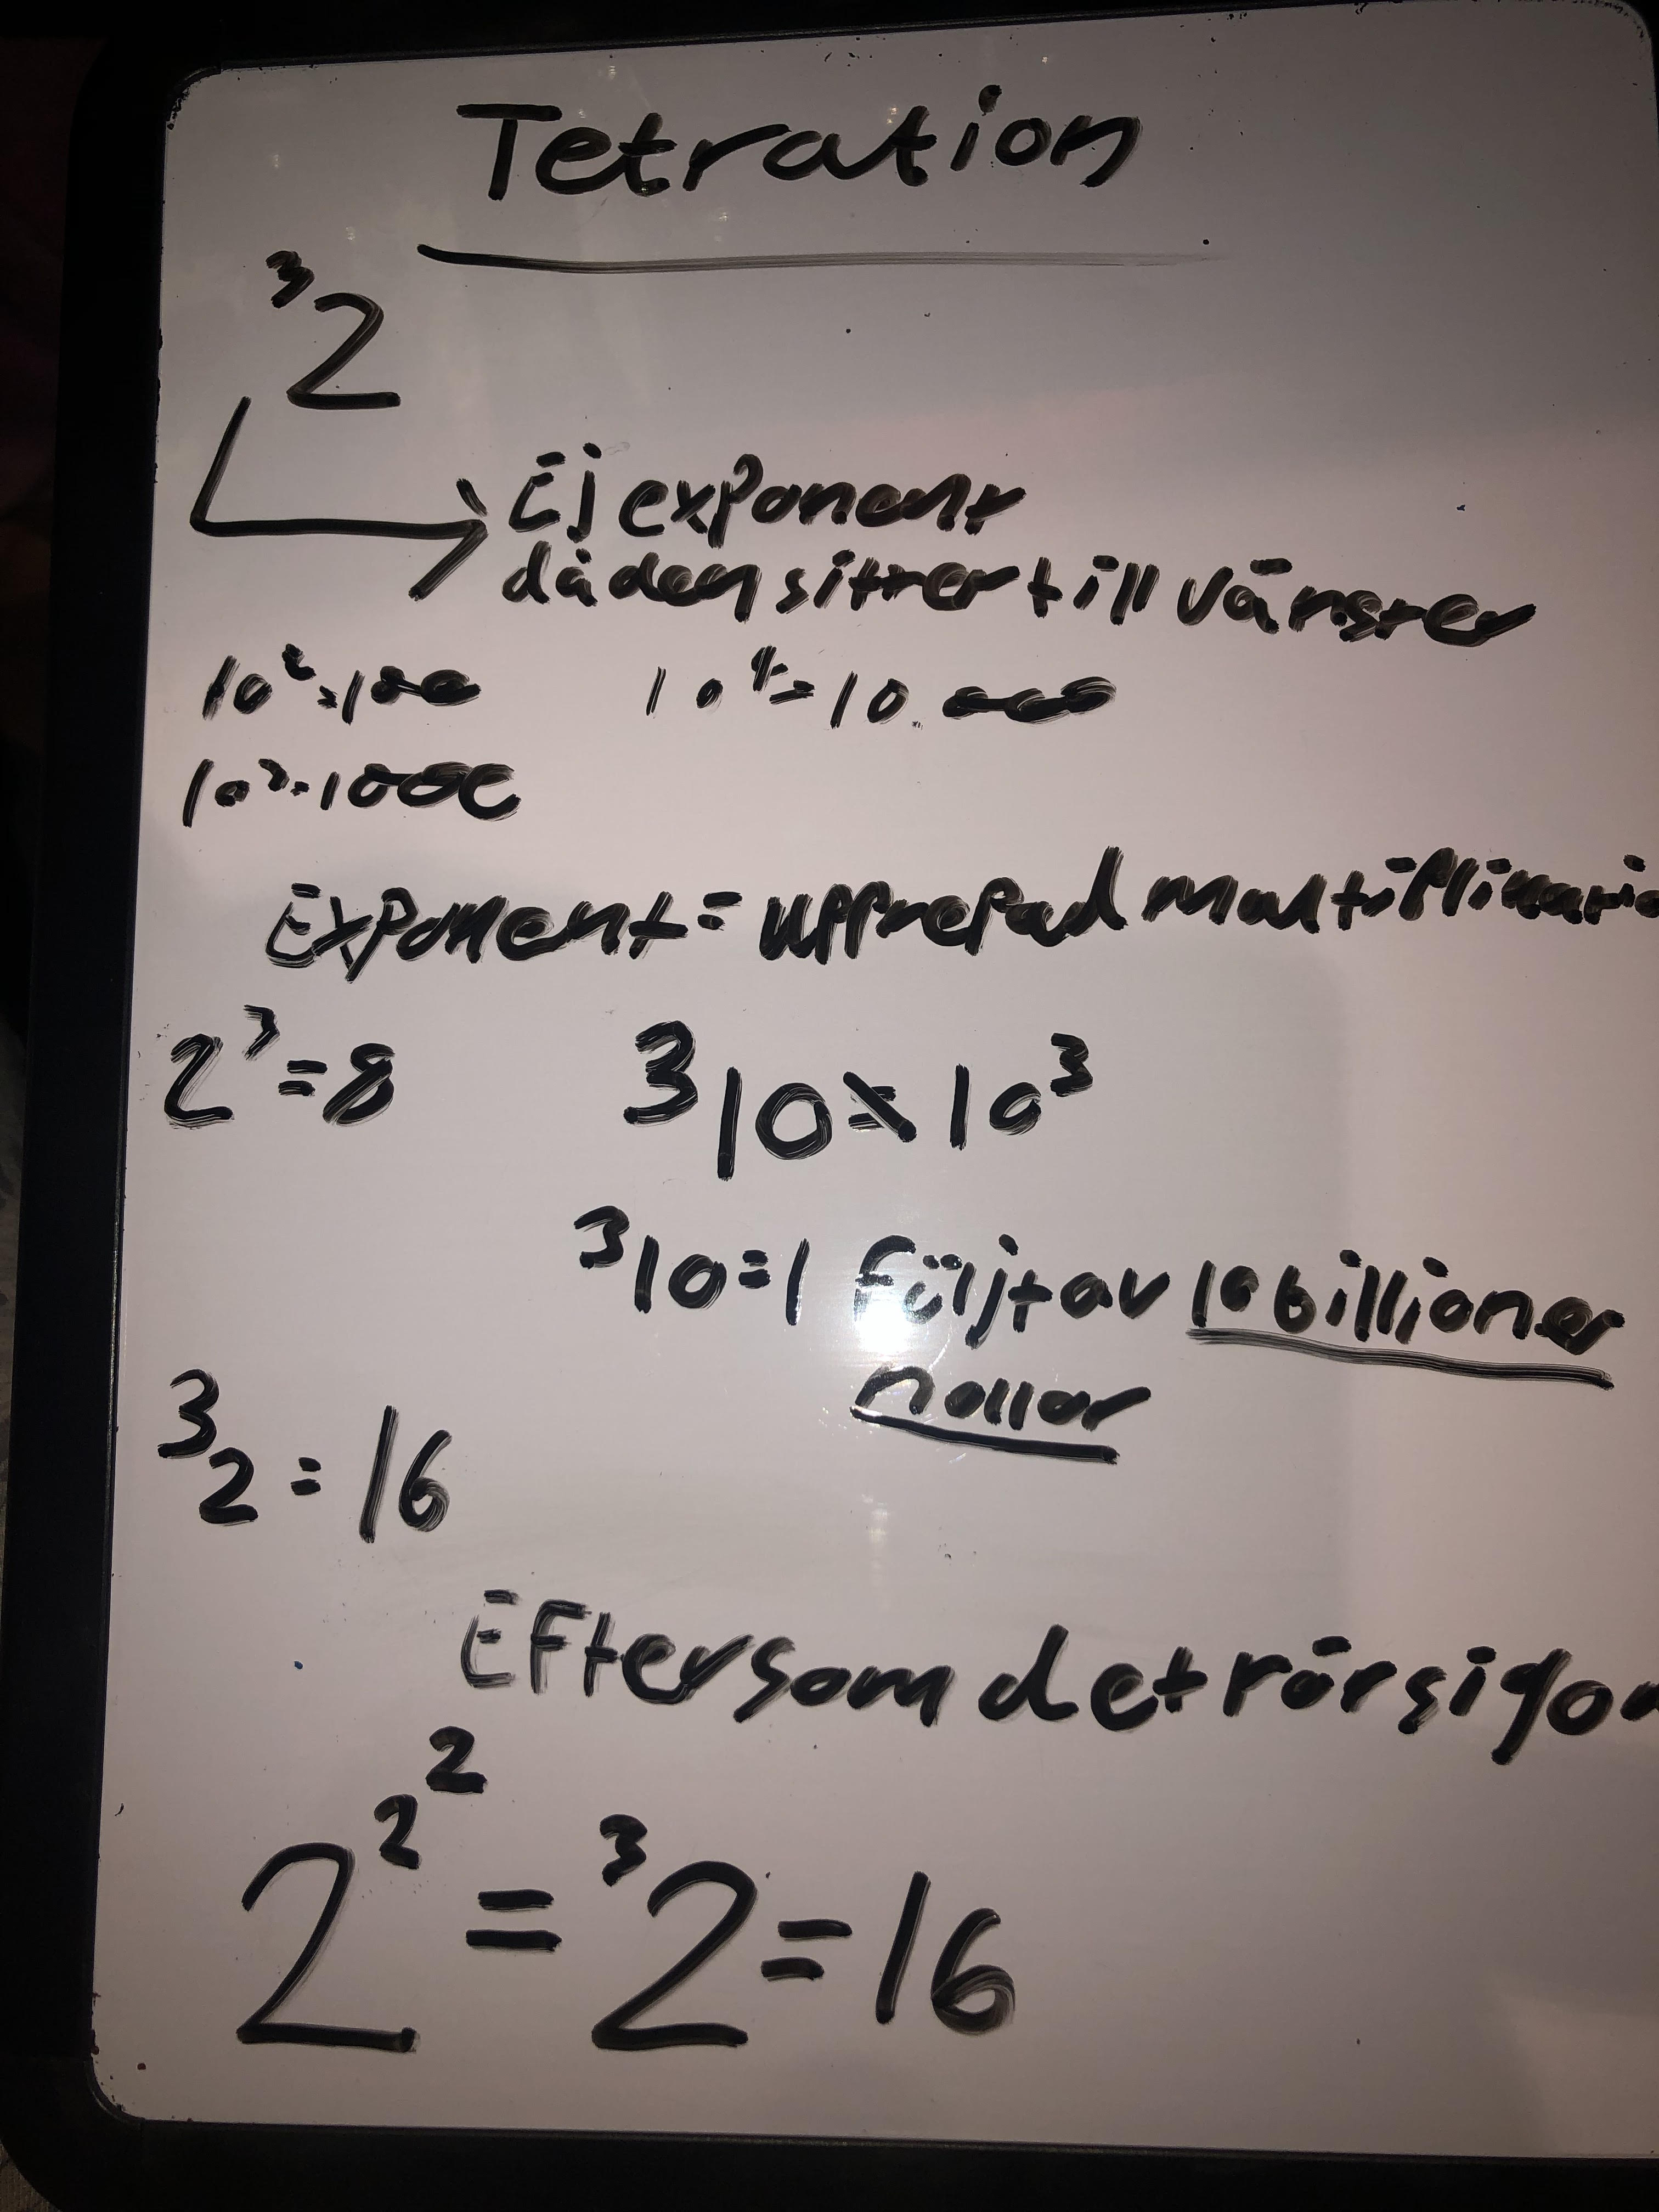 Tetration
³2
Ej exponent
då den sitter till vänster
10²=100 10⁴=10.000
10³=1000
Exponent = upprepad multiplikatio
2³=8 ³10≠10³
³10=1 följt av 10 billioner
nollor
³2=16
Eftersom det rör sig om
2^2^2 = ³2 = 16